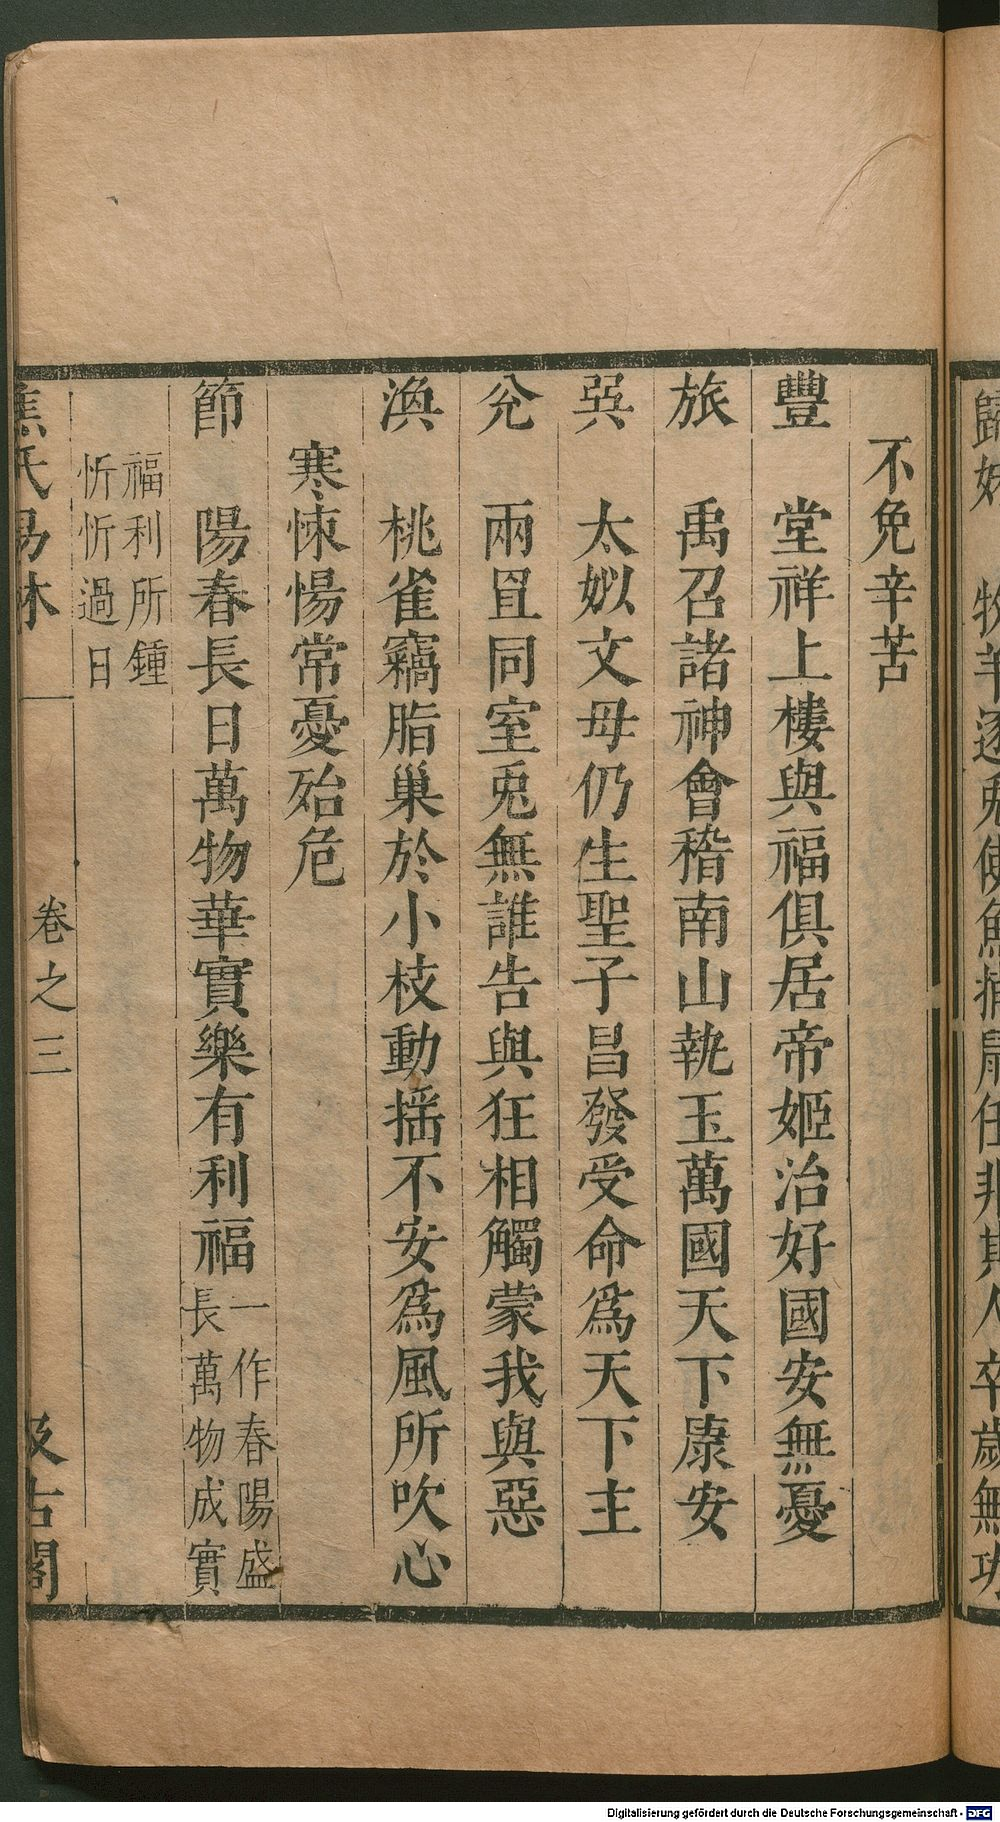 歸妹 牧羊逐兎使魚捕鼠任非其人卒歲無功
不免辛苦
豐 堂祥上樓與福俱居帝姬治好國安無憂
旅 禹召諸神會稽南山執玉萬國天下康安
巽 太姒文母仍生聖子昌發受命爲天下主
兊 兩置同室兎無誰告與狂相觸蒙我與惡
渙 桃雀竊脂巢於小枝動揺不安爲風所吹心
寒悚惕常憂殆危
節 陽春長日萬物華實樂有利福一作春陽盛長萬物成實
福利所鍾忻忻過日
焦氏易林 卷之三 汲古閣
Digitalisierung gefördert durch die Deutsche Forschungsgemeinschaft - DFG